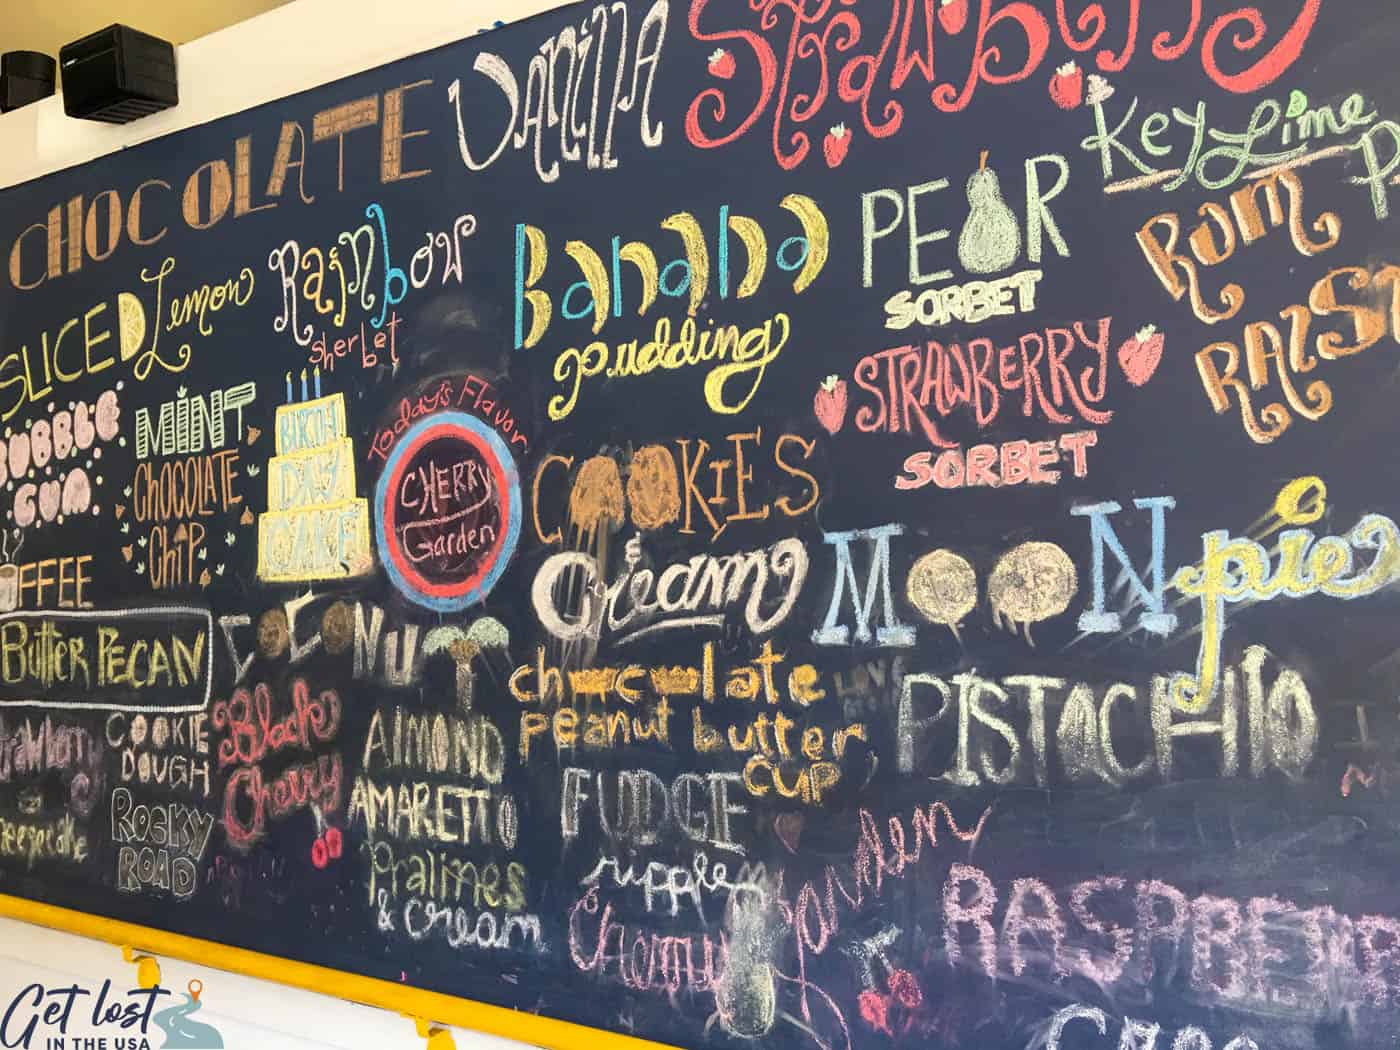 CHOCOLATE
Vanilla
Strawberry
Key Lime
SLICED Lemon
Rainbow
sherbet
Banana
Pudding
PEAR
SORBET
Rum
RAISI
BUBBLE
GUM
MINT
CHOCOLATE
CHIP
BIRTH
DAY
CAKE
Today's Flavor
CHERRY
Garden
COOKIES
&
Cream
STRAWBERRY
SORBET
MOON pie
COFFEE
Butter PECAN
COCONUT
chocolate
peanut butter
cup
PISTACHIO
Strawberry
Cheesecake
COOKIE
DOUGH
ROCKY
ROAD
Black
Cherry
ALMOND
AMARETTO
Pralines
& Cream
FUDGE
ripple
Cherry Garden
RASPBERR
Get lost
IN THE USA